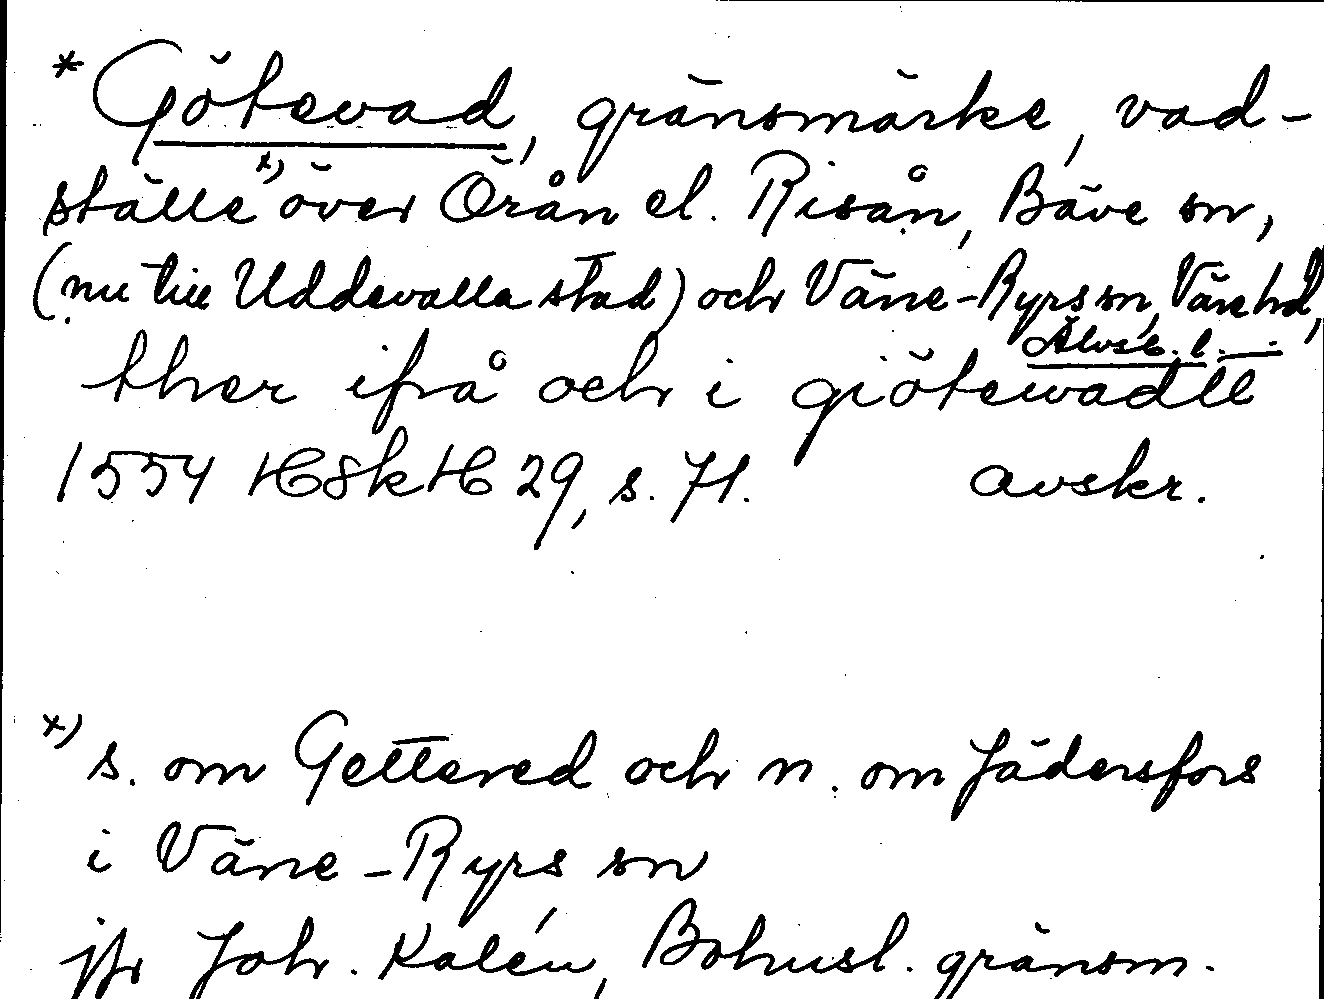 * Götevad, gränsmärke, vad-
ställe x) över Örån el. Risån, Bäve sn,
(nu till Uddevalla stad) och Väne-Ryrs sn, Väne hd,
Älvsb. l.
ther ifrå och i giötewadll
1554 HSkH 29, s. 71. avskr.
x) s. om Gettered och n. om Jädersfors
i Väne-Ryrs sn
jfr Joh. Kalén, Bohusl. gränsm.